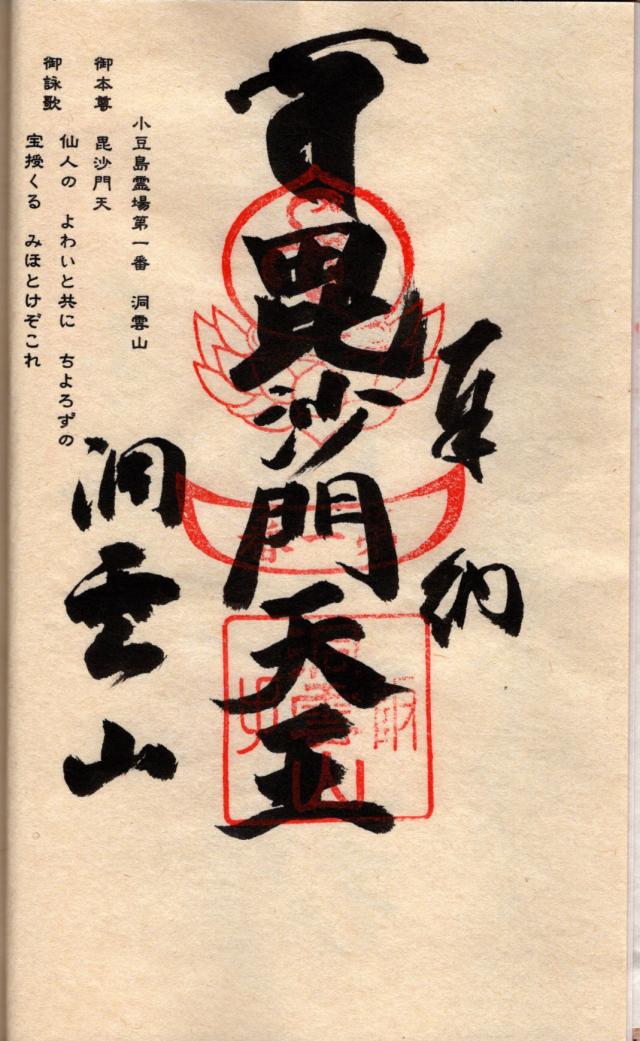 奉納
毘沙門天王
洞雲山
小豆島霊場第一番 洞雲山
御本尊 毘沙門天
御詠歌 仙人の よわいと共に ちよろずの
宝授くる みほとけぞこれ